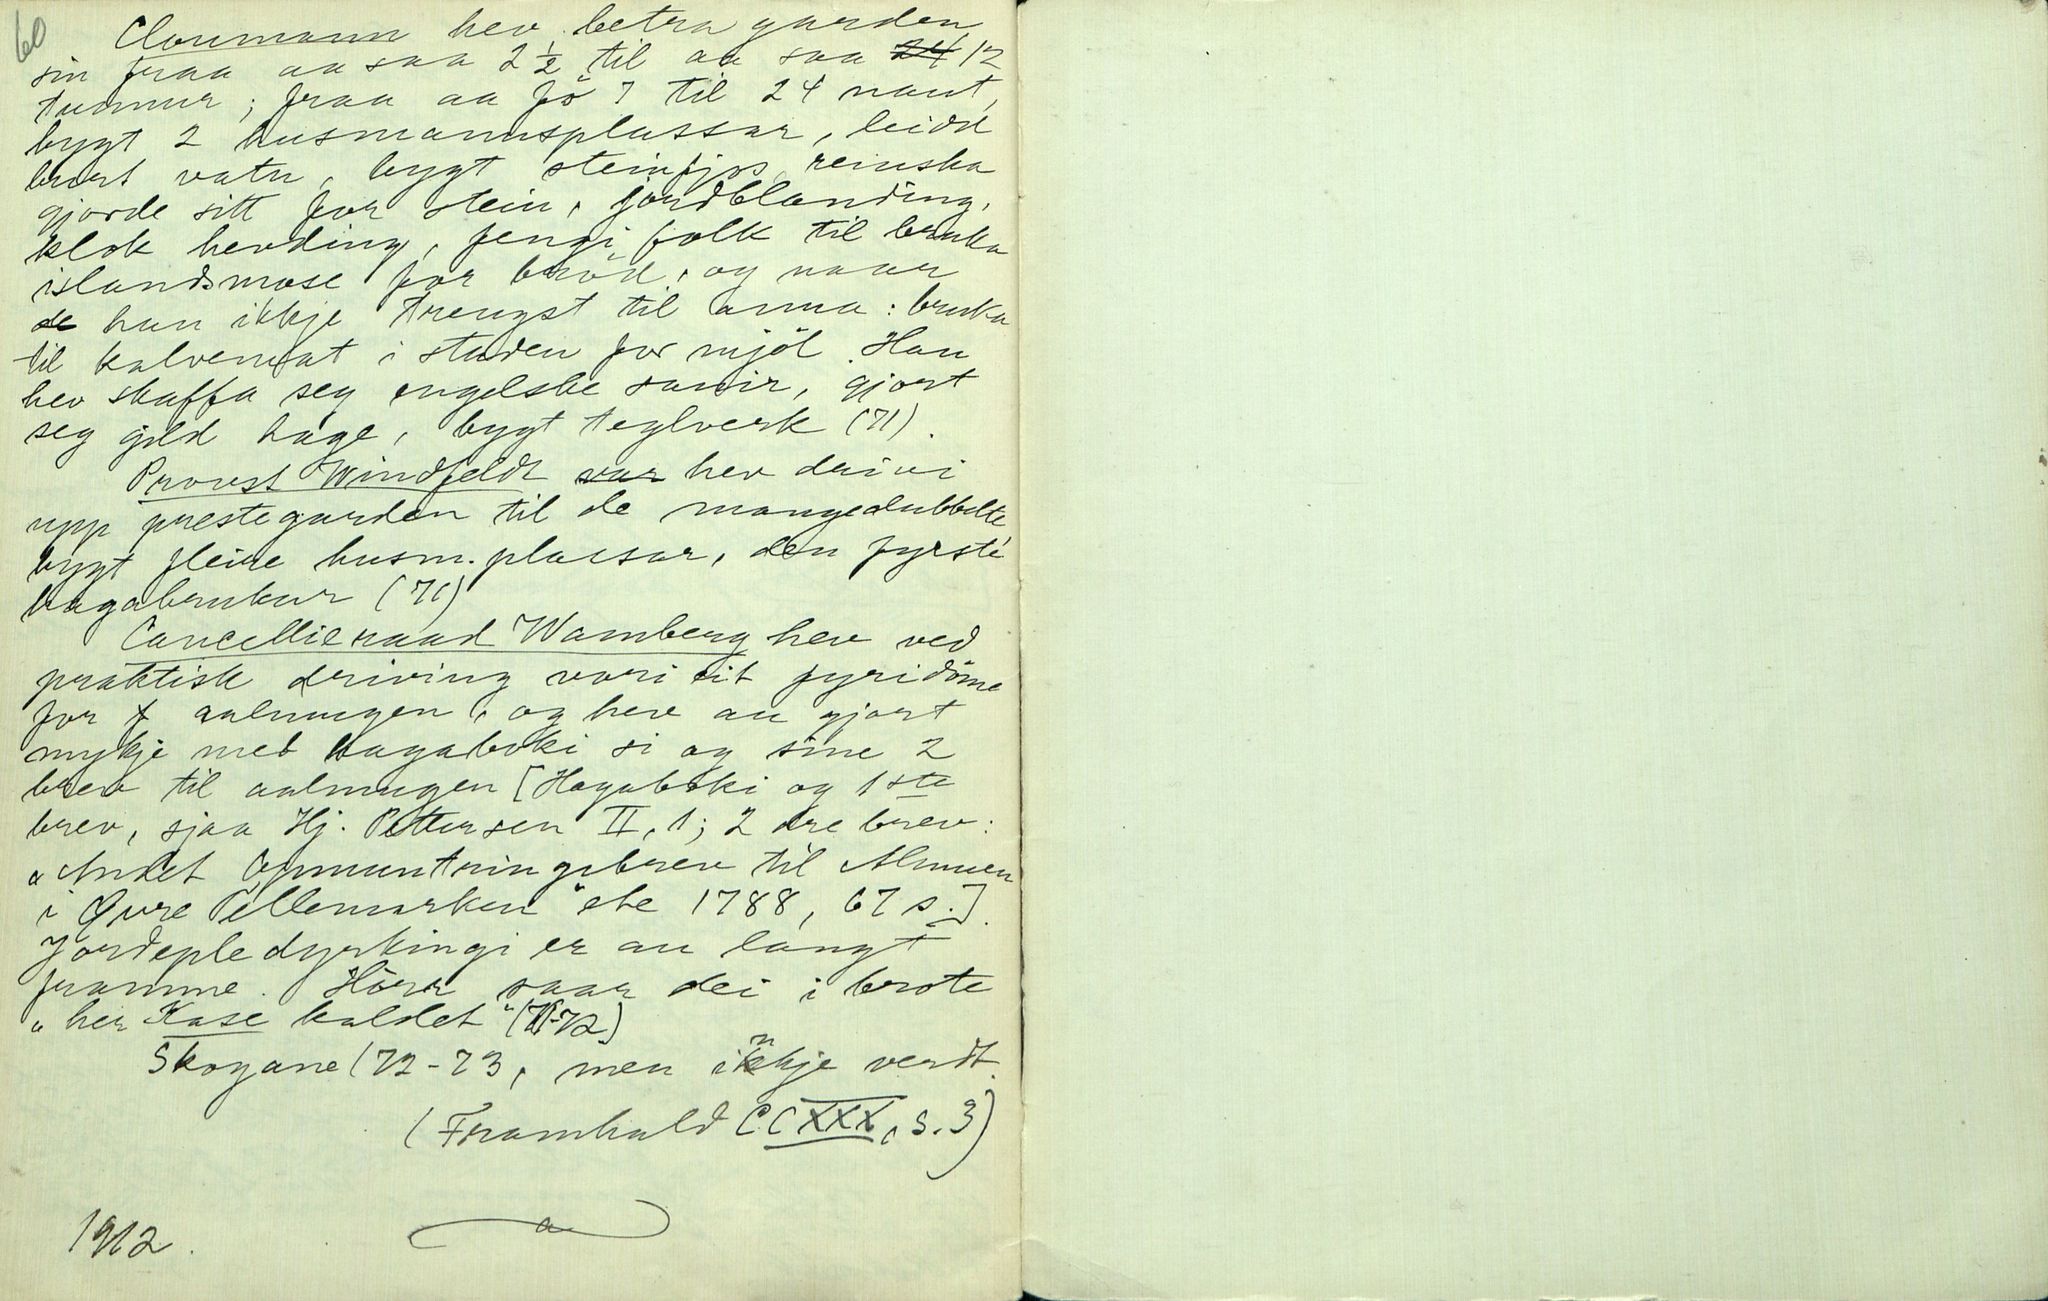 60
Cloumann hev betra garden
sin fraa aa saa 2 1/2 til aa saa 24 12
tunnur; fraa aa fö 7 til 24 naut,
bygt 2 husmannsplassar, leidd
burt vatn, bygt steinfjos, reinska
gjorde sitt for stein, jordblanding,
klok hevding, fengi folk til bruka
islandsmose for bröd, og naar
de han ikkje trengst til anna: bruka
til kalvemat i staden for mjöl. Han
hev skaffa seg engelske sauir, gjort
seg gild hage, bygt teglverk (71).
Provst Windfeldt var hev drivi
upp prestegarden til de mangedubbelte
bygt fleire husm.plassar, den fyrste
hagabrukar (71)
Cancellieraad Wamberg hev ved
praktisk driving vori eit fyridöme
for f aalmugen, og hev au gjort
mykje med hagaboki si og sine 2
brev til aalmugen [Hagaboki og 1ste
brev, sjaa Hj. Pettersen II, 1; 2 dre brev:
"Andet Opmuntringsbrev til Almuen
i Øvre Tellemarken" etc 1788, 67 s.].
Jordepledyrkingi er au langt
framme. Hörr saar dei i brote
"her Kase kaldet" (71-72)
Skogane (72-73, men inkje verdt.
(Framhald CCXXX, s. 3)
1912.